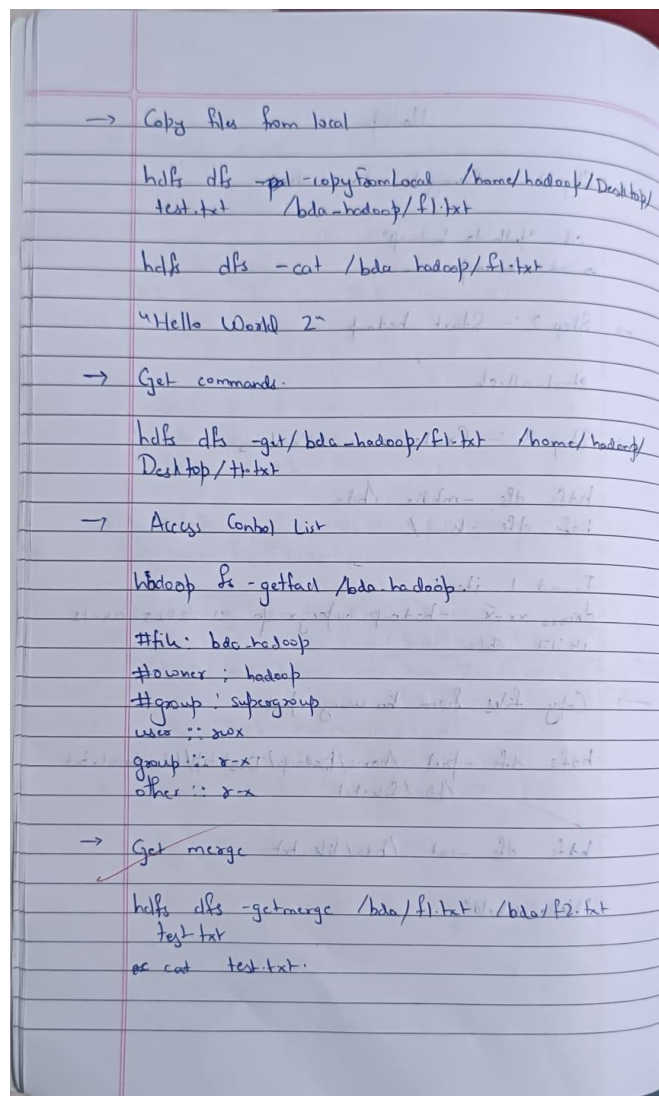 → Copy files from local
hdfs dfs -copyFromLocal /home/hadoop/Desktop/
test.txt /bda_hadoop/f1.txt
hdfs dfs -cat /bda_hadoop/f1.txt
"Hello World 2"
→ Get commands.
hdfs dfs -get/bda_hadoop/f1.txt /home/hadoop/
Desktop/tt.txt
→ Access Control List
hadoop fs -getfacl /bda_hadoop.
#file: bda_hadoop
#owner : hadoop
#group : supergroup
user :: rwx
group :: r-x
other :: r-x
→ Get merge
hdfs dfs -getmerge /bda/f1.txt /bda/f2.txt
test.txt
cat test.txt.